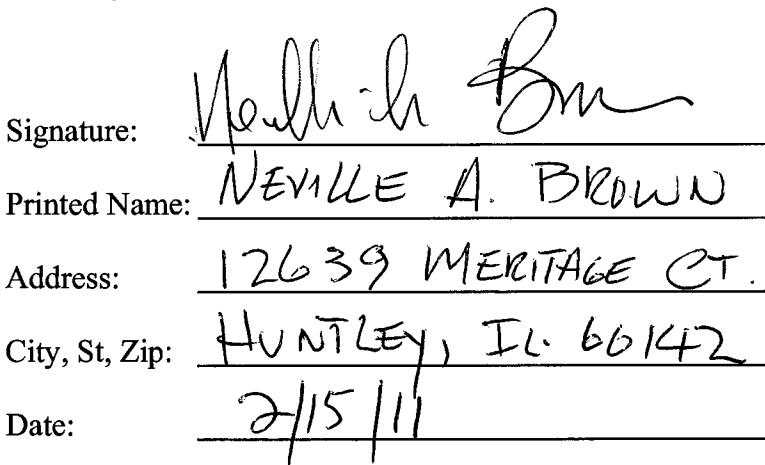 Signature: Brown
Printed Name: NEVILLE A. BROWN
Address: 12639 MERITAGE CT.
City, St, Zip: HUNTLEY, IL. 60142
Date: 2/15/11